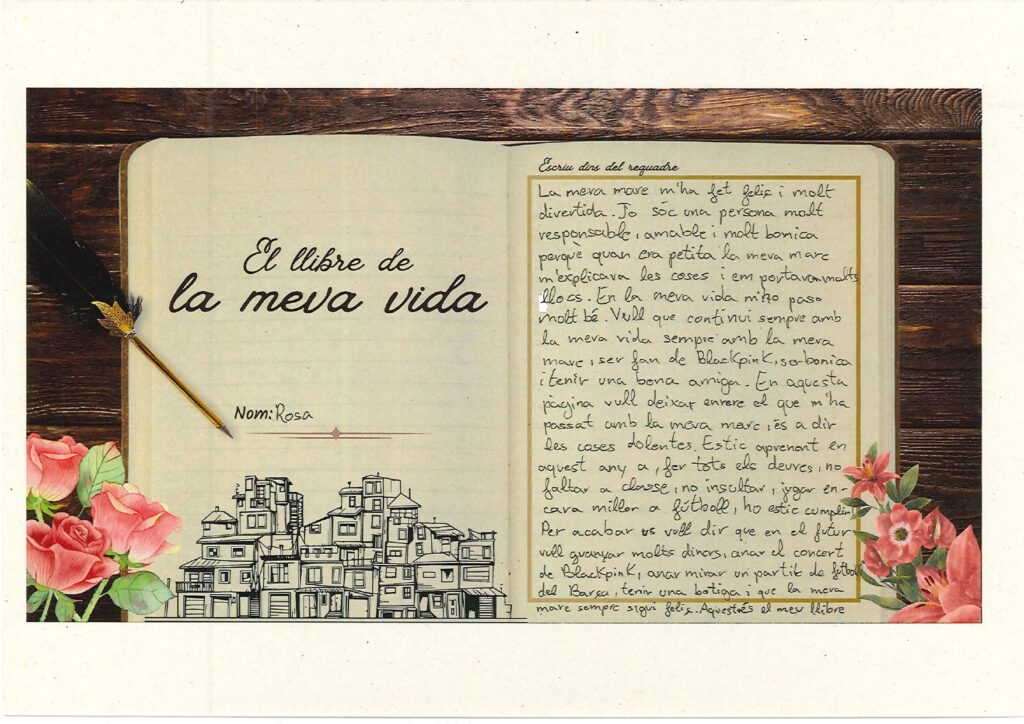 El llibre de
la meva vida
Nom: Rosa
Escriu dins del requadre
La meva mare m'ha fet feliç i molt
divertida. Jo sóc una persona molt
responsable, amable i molt bonica
perquè quan era petita la meva mare
m'explicava les coses i em portava molts
llocs. En la meva vida m'ho paso
molt bé. Vull que continui sempre amb
la meva vida sempre amb la meva
mare, ser fan de BlackpinK, ser bonica
i tenir una bona amiga. En aquesta
pàgina vull deixar enrere el que m'ha
passat amb la meva mare, és a dir
les coses dolentes. Estic aprenent en
aquest any a, fer tots els deures, no
faltar a classe, no insultar, jugar en-
cara millor a fútboll, ho estic complint!
Per acabar us vull dir que en el futur
vull guanyar molts diners, anar el concert
de BlackpinK, anar mirar un partit de fútboll
del Barça, tenir una botiga i que la meva
mare sempre sigui feliç. Aquest és el meu llibre